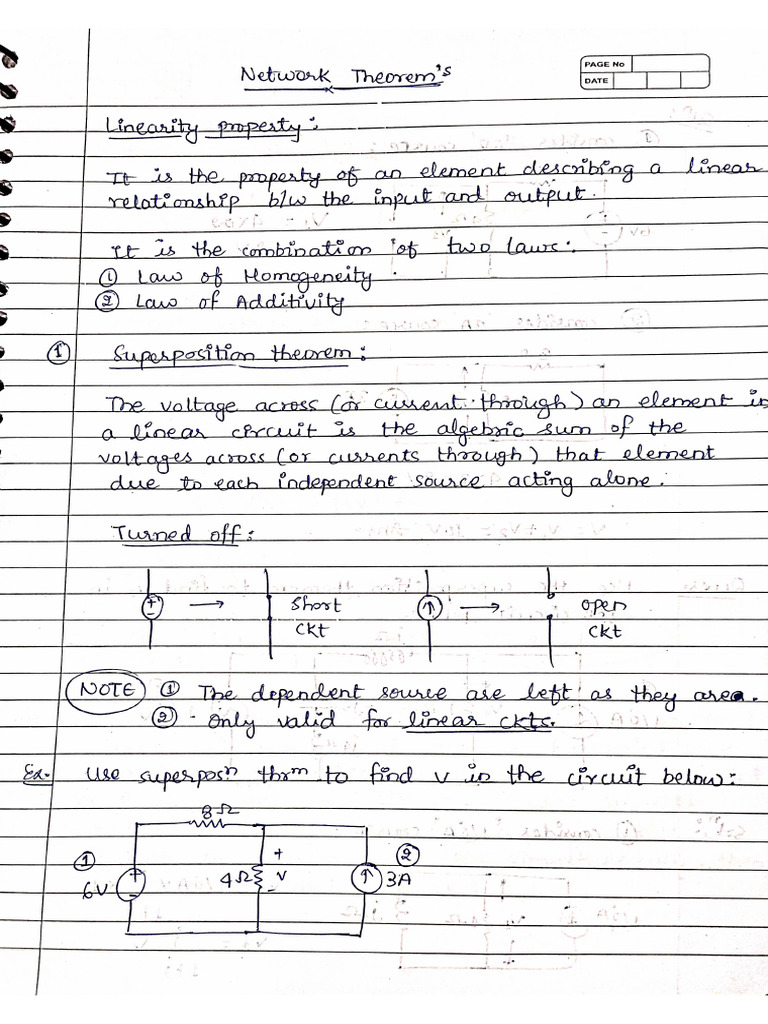 Network Theorem's
PAGE No
DATE
Linearity property:
It is the property of an element describing a linear
relationship b/w the input and output.
It is the combination of two laws:
① Law of Homogeneity
② Law of Additivity
① Superposition theorem:
The voltage across (or current through) an element in
a linear circuit is the algebric sum of the
voltages across (or currents through) that element
due to each independent source acting alone.
Turned off:
+ - → short ckt ↑ → open ckt
NOTE ① The dependent source are left as they are.
② Only valid for linear ckts.
Ex. Use superposn thrm to find v in the circuit below:
8Ω
① + ②
6V + - 4Ω v - ↑ 3A